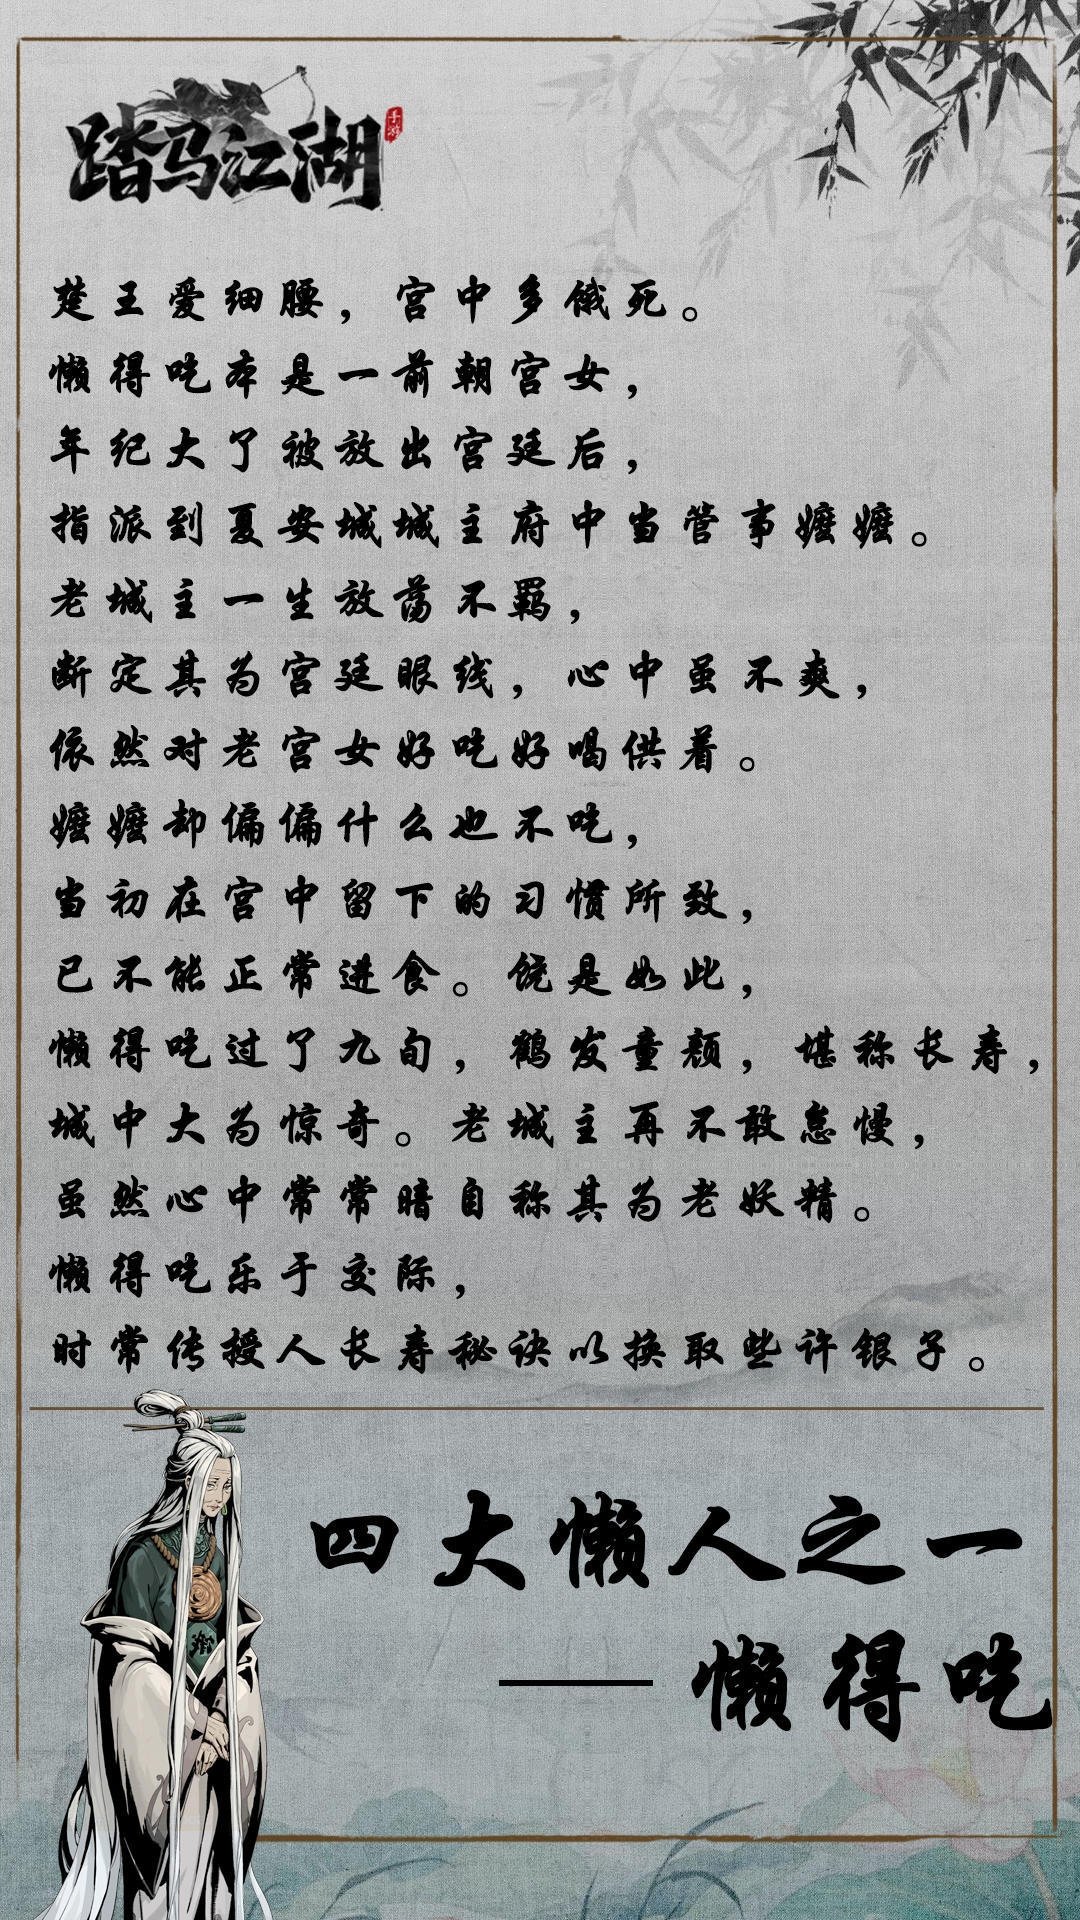 踏马江湖
手游
楚王爱细腰，宫中多饿死。
懒得吃本是一前朝宫女，
年纪大了被放出宫廷后，
指派到夏安城城主府中当管事嬷嬷。
老城主一生放荡不羁，
断定其为宫廷眼线，心中虽不爽，
依然对老宫女好吃好喝供着。
嬷嬷却偏偏什么也不吃，
当初在宫中留下的习惯所致，
已不能正常进食。饶是如此，
懒得吃过了九旬，鹤发童颜，堪称长寿，
城中大为惊奇。老城主再不敢怠慢，
虽然心中常常暗自称其为老妖精。
懒得吃乐于交际，
时常传授人长寿秘诀以换取些许银子。
四大懒人之一
——懒得吃